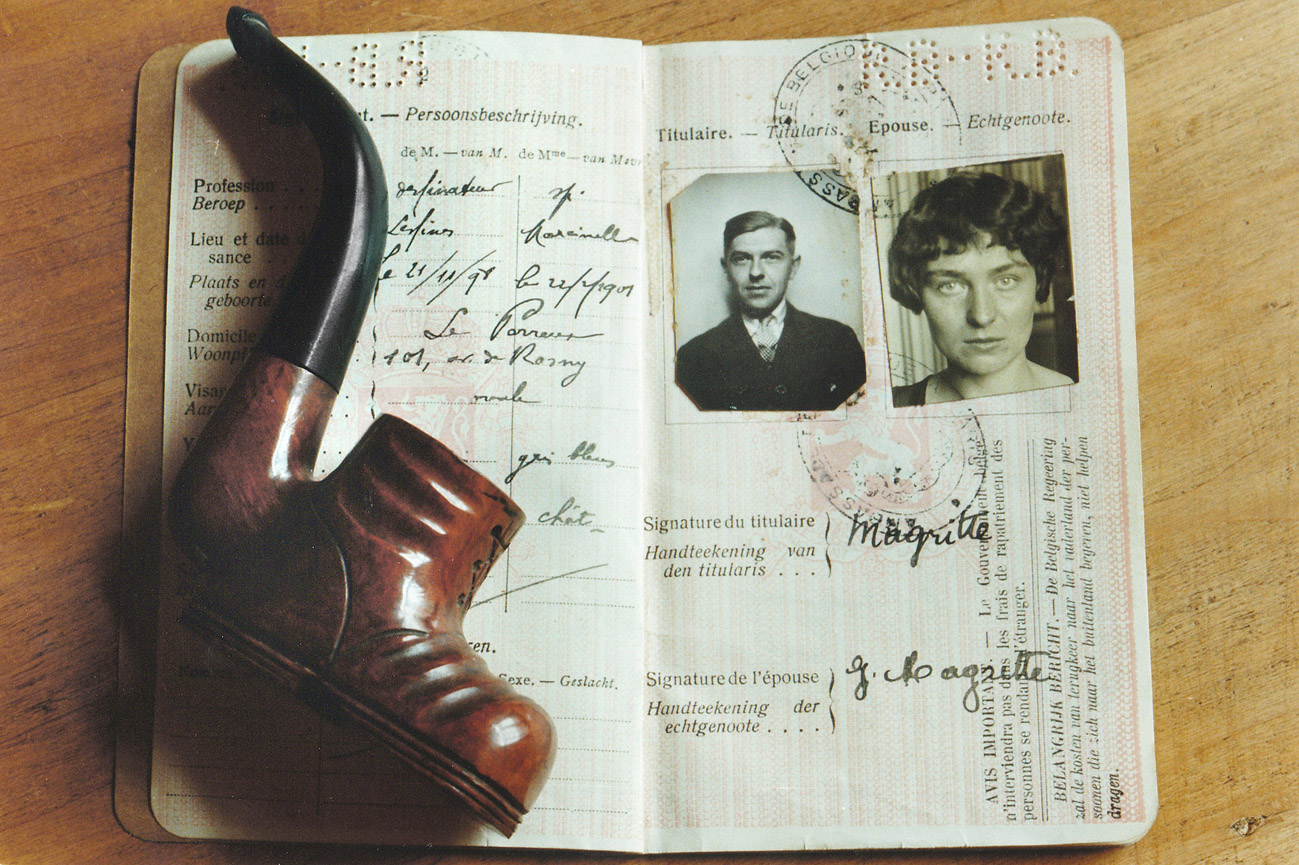 2
— Persoonsbeschrijving.
de M. — van M. de Mme — van Mevr
Profession . . .
dessinateur sp.
Beroep . . . .
Lieu et date d
Lessines Marcinelle
sance .
Plaats en d
le 21/11/98 le 22/2/1901
geboorte
Domicile
Le Perreux
Woonpl
101, av. de Rosny
Visag
ovale
Aan
gris bleus
chât
Sexe. — Geslacht.
K.B.
BELGIQU
Titulaire. — Titularis. Epouse. — Echtgenoote.
Signature du titulaire
Magritte
Handteekening van
den titularis . . .
Signature de l'épouse
G. Magritte
Handteekening der
echtgenoote . . . .
AVIS IMPORTANT. — Le Gouvernement belge
n'interviendra pas dans les frais de rapatriement des
personnes se rendant à l'étranger.
BELANGRIJK BERICHT. — De Belgische Regeering
zal de kosten van terugkeer naar het vaderland der per-
soonen die zich naar het buitenland begeven, niet helpen
dragen.